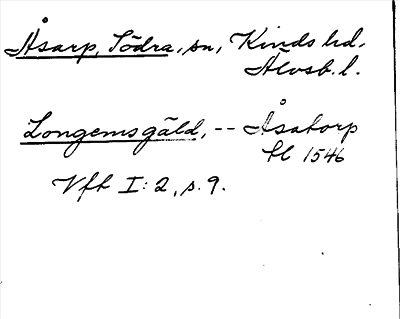 Åsarp, Södra, sn, Kinds hd,
Älvsb. l.
Longemsgäld, -- Åsatorp
tl 1546
Vfb I: 2, s. 9.